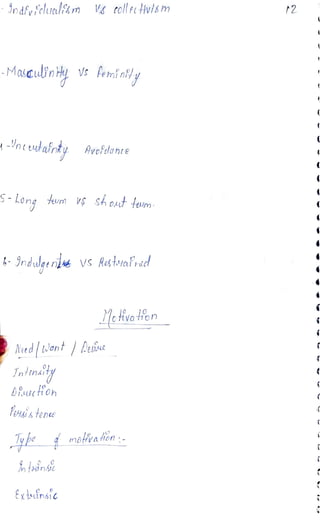 - Individualism Vs collectivism
12
- Masculinity Vs Feminity
- Uncertainity Avoidance
5 - Long term vs short term
6 - Indulgent vs Restrained
Motivation
Need / Want / Desire
Intensity
Direction
Persistence
Type of motivation :-
Intrinsic
Extrinsic